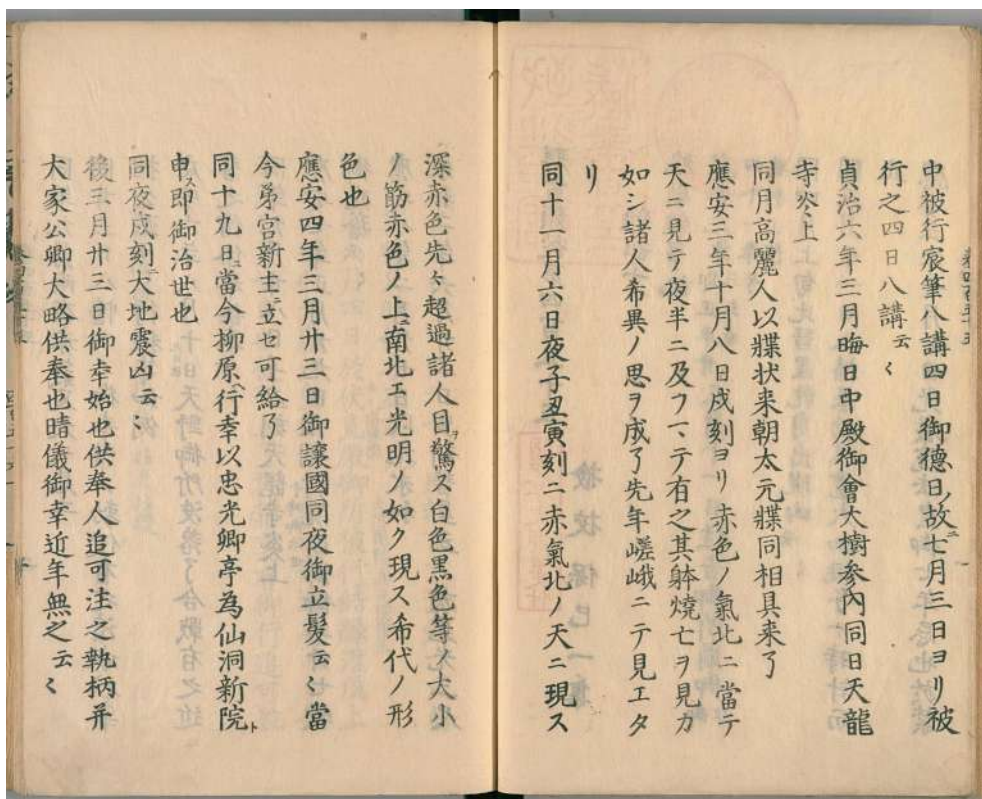 中被行宸筆八講四日御德日ノ故ニ七月三日ヨリ被
行之四日八講云〻
貞治六年三月晦日中殿御會大樹参内同日天龍
寺炎上
同月高麗人以牒状来朝太元牒同相具来了
應安三年十月八日戌刻ヨリ赤色ノ氣北ニ當テ
天ニ見テ夜半ニ及フマテ有之其躰焼亡ヲ見カ
如シ諸人希異ノ思ヲ成了先年嵯峨ニテ見エタ
リ
同十一月六日夜子丑寅刻ニ赤氣北ノ天ニ現ス
深赤色先々超過諸人目ヲ驚ス白色黒色等ノ大小
ノ筋赤色ノ上ニ南北エ光明ノ如ク現ス希代ノ形
色也
應安四年三月廿三日御譲國同夜御立髪云〻當
今弟宮新主ニ立セ可給了
同十九日ニ當今柳原ニ行幸以忠光卿亭為仙洞新院ト
申ス即御治世也
同夜戌刻ニ大地震凶云〻
後三月廿三日御幸始也供奉人追可注之執柄并
大家公卿大略供奉也晴儀御幸近年無之云〻